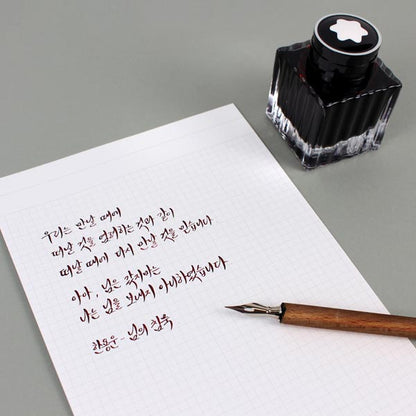 우리는 만날 때에
떠날 것을 염려하는 것과 같이
떠날 때에 다시 만날 것을 믿습니다
아아, 님은 갔지마는
나는 님을 보내지 아니하였습니다
한용운 - 님의 침묵